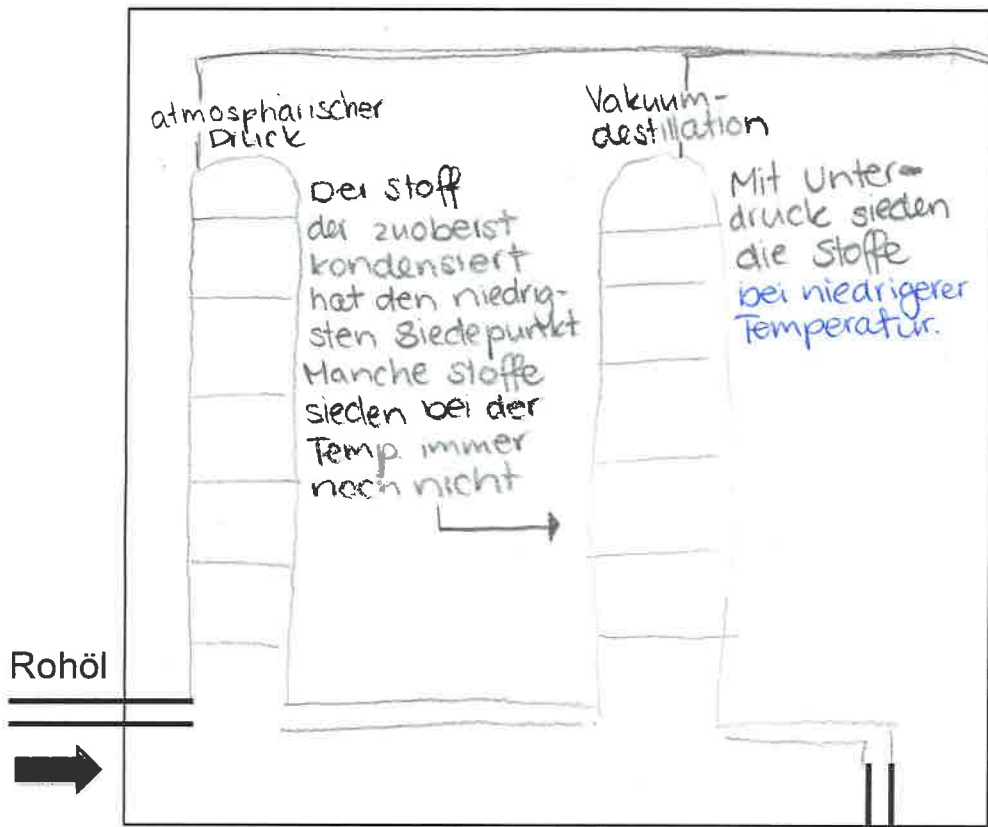 atmosphärischer
Druck
Der Stoff
der zuoberst
kondensiert
hat den niedrig-
sten Siedepunkt
Manche Stoffe
sieden bei der
Temp. immer
noch nicht
Vakuum-
destillation
Mit Unter-
druck sieden
die Stoffe
bei niedrigerer
Temperatur.
Rohöl